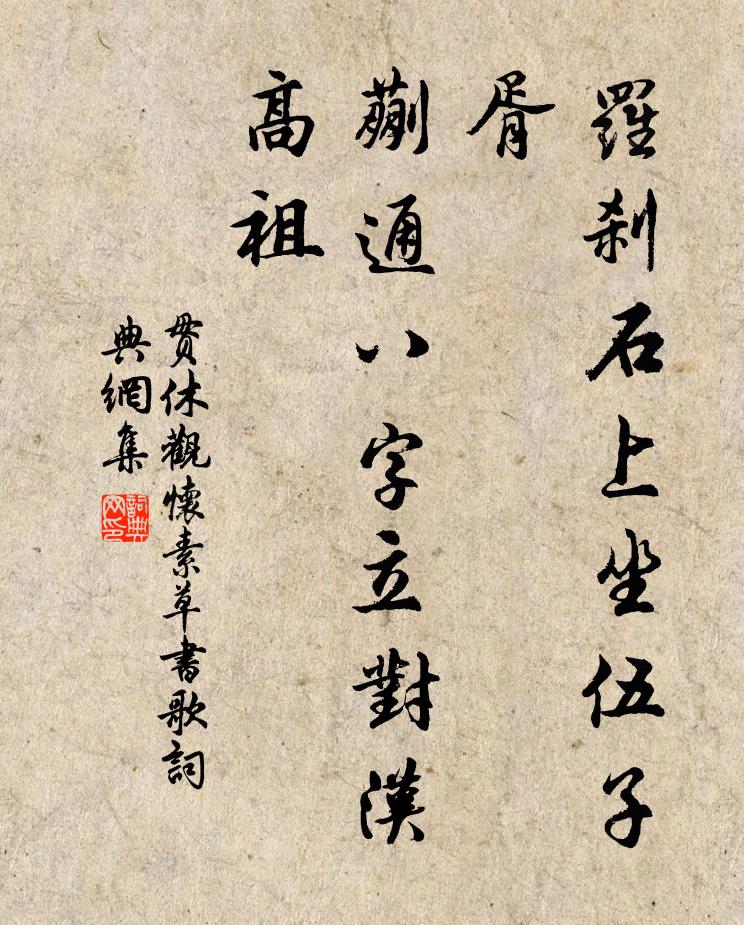 羅刹石上坐伍子
胥
蒯通八字立對漢
高祖
貫休觀懷素草書歌詞
典網集
詞典
网印